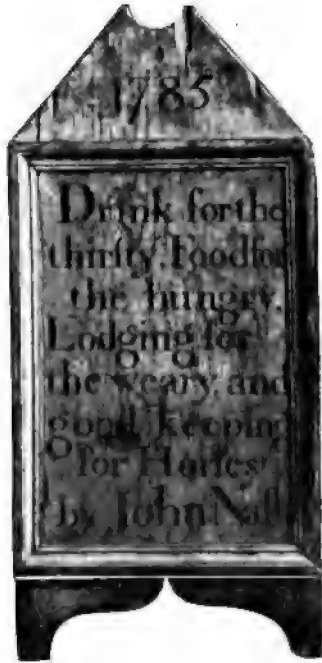 1785
Drink for the
thirsty, Food for
the hungry,
Lodging for
the weary, and
good keeping
for Horses
by John